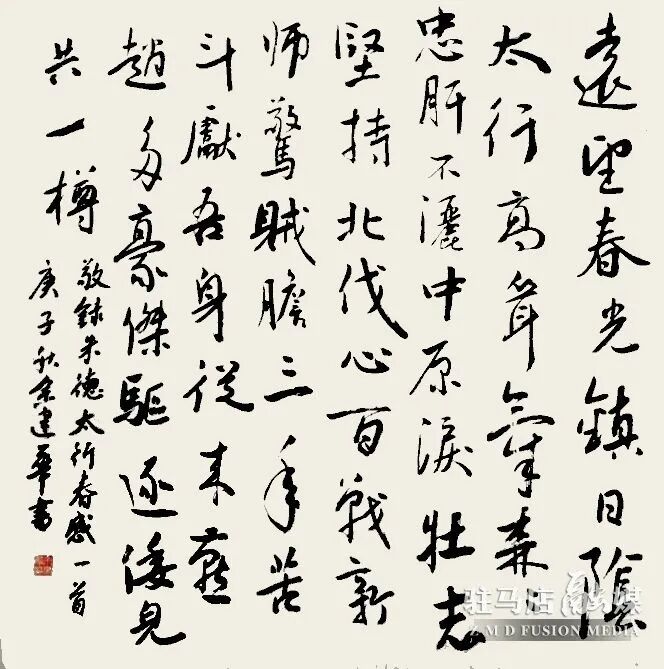 遠望春光鎮日陰
太行高聳氣森森
忠肝不灑中原淚壯志
堅持北伐心百戰新
師驚賊膽三年苦
斗獻吾身從来燕
趙多豪傑驅逐倭兒
共一樽
敬録朱德太行春感一首
庚子秋余建華書
驻马店融媒
Z M D FUSION MEDIA